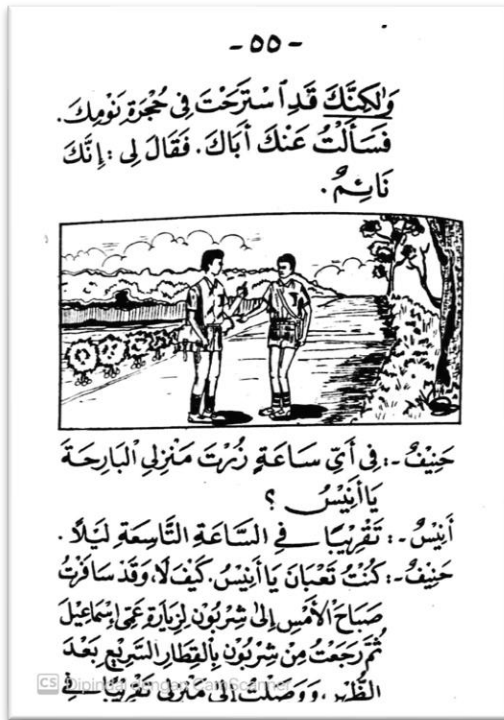 - ٥٥ -
وَلٰكِنَّكَ قَدِ ٱسْتَرَحْتَ فِى حُجْرَةِ نَوْمِكَ.
فَسَأَلْتُ عَنْكَ أَبَاكَ. فَقَالَ لِى: إِنَّكَ
نَائِمٌ.
حَنِيْفٌ -: فِى أَيِّ سَاعَةٍ زُرْتَ مَنْزِلِي الْبَارِحَةَ
يَا أَنِيْسُ ؟
أَنِيْسٌ -: تَقْرِيْبًا فِي السَّاعَةِ التَّاسِعَةِ لَيْلًا.
حَنِيْفٌ -: كُنْتُ تَعْبَانَ يَا أَنِيْسُ. كَيْفَ لَا، وَقَدْ سَافَرْتُ
صَبَاحَ الْأَمْسِ إِلَىٰ شِرْبُوْن لِزِيَارَةِ عَمِّي إِسْمَاعِيْلَ
ثُمَّ رَجَعْتُ مِنْ شِرْبُوْن بِالْقِطَارِ السَّرِيْعِ بَعْدَ
الظُّهْرِ، وَوَصَلْتُ إِلَىٰ مَنْزِلِي تَقْرِيْبًا فِي
CS Dipindai dengan CamScanner